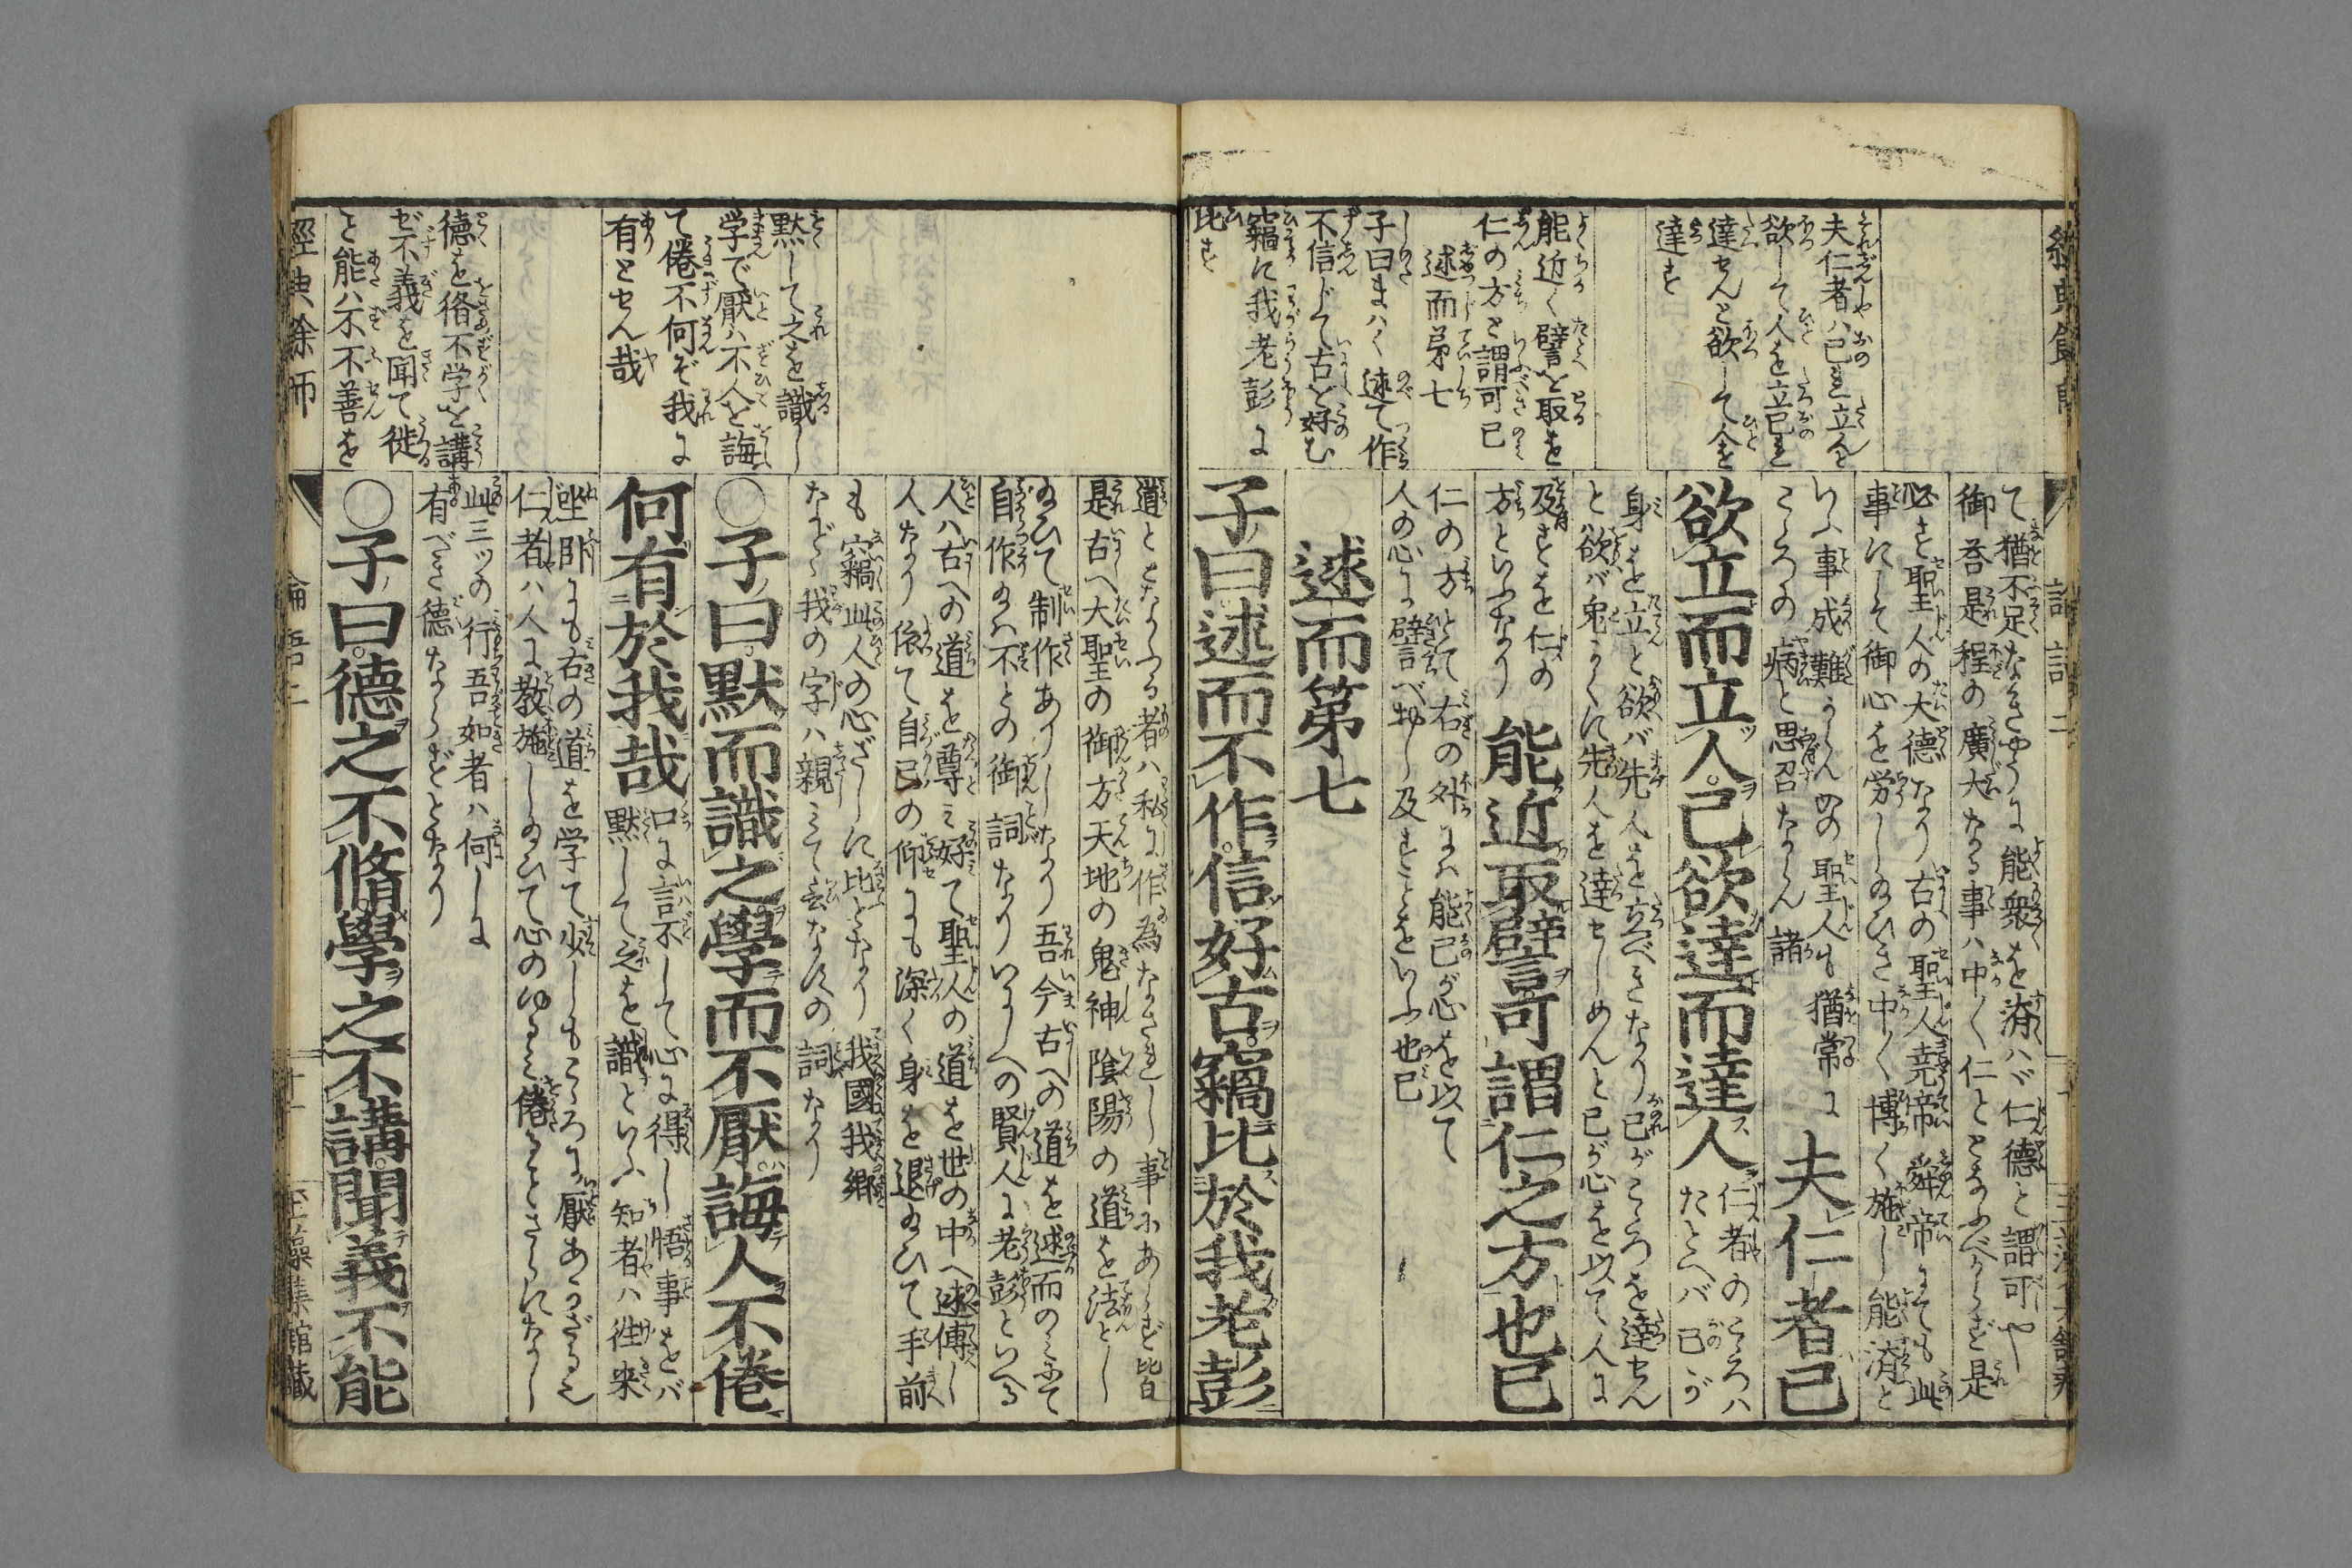 夫仁者ハ己レ立んと
欲して人を立己レ
達せんと欲して人を
達す
能近く譬を取を
仁の方と謂可已
述而第七
子曰まハく述て作
不信じて古を好む
竊に我老彭に
比す
て猶不足なきやうに能衆を済ハバ仁德と謂可や
御答是程の廣大なる事ハ中〳〵仁ととなふべからず是
必ず聖人の大德なり古の聖人尭帝舜帝にても此
事にこそ御心を労しめひき中〳〵博く施し能済と
いふ事成難からんめの聖人も猶常に
こゝろの病と思召ならん諸
夫仁者己
欲立而立人己欲達而達人
仁者のこゝろハ
たとへバ己が
身を立と欲バ先人を立べきなり己がこゝろを達せん
と欲バ兎にかくに先人を達せしめんと己が心を以て人に
及すを仁の
方といふなり
能近取譬可謂仁之方也已
仁の方とて右の外にハ能己が心を以て
人の心に譬べ也し及すことをいふ也已
述而第七
子曰述而不作信好古竊比於我老彭
黙して之を識し
学で厭ハ不人を誨
て倦不何ぞ我に
有とせん哉
德を脩不学を講
ぜ不義を聞て徙
と能ハ不不善を
道となつる者ハ私に作為なされし事にあらず皆
是古へ大聖の御方天地の鬼神陰陽の道を法とし
めひて制作ありしなり吾今古への道を述而のミにて
自作めハ不との御詞なりいにしへの賢人に老彭といへる
人ハ古への道を尊ミ好て聖人の道を世の中へ述傳し
人なり依て自己の仰せにも深く身を退めひて手前
も竊此人の心ざしに比となり我國我郷
などゝ我の字ハ親ミて云なすの詞なり
○子曰默而識之學而不厭誨人不倦
何有於我哉
口に言不して心に得し悟事をバ
黙して之を識といふ知者ハ往来
坐臥にも右の道を学て少しもこゝろに厭あかざるを
仁者ハ人に教施しめひて心のゆるミ倦ことさらになし
此三ツの行吾如者ハ何しに
有べき德ならずとなり
○子曰德之不脩學之不講聞義不能